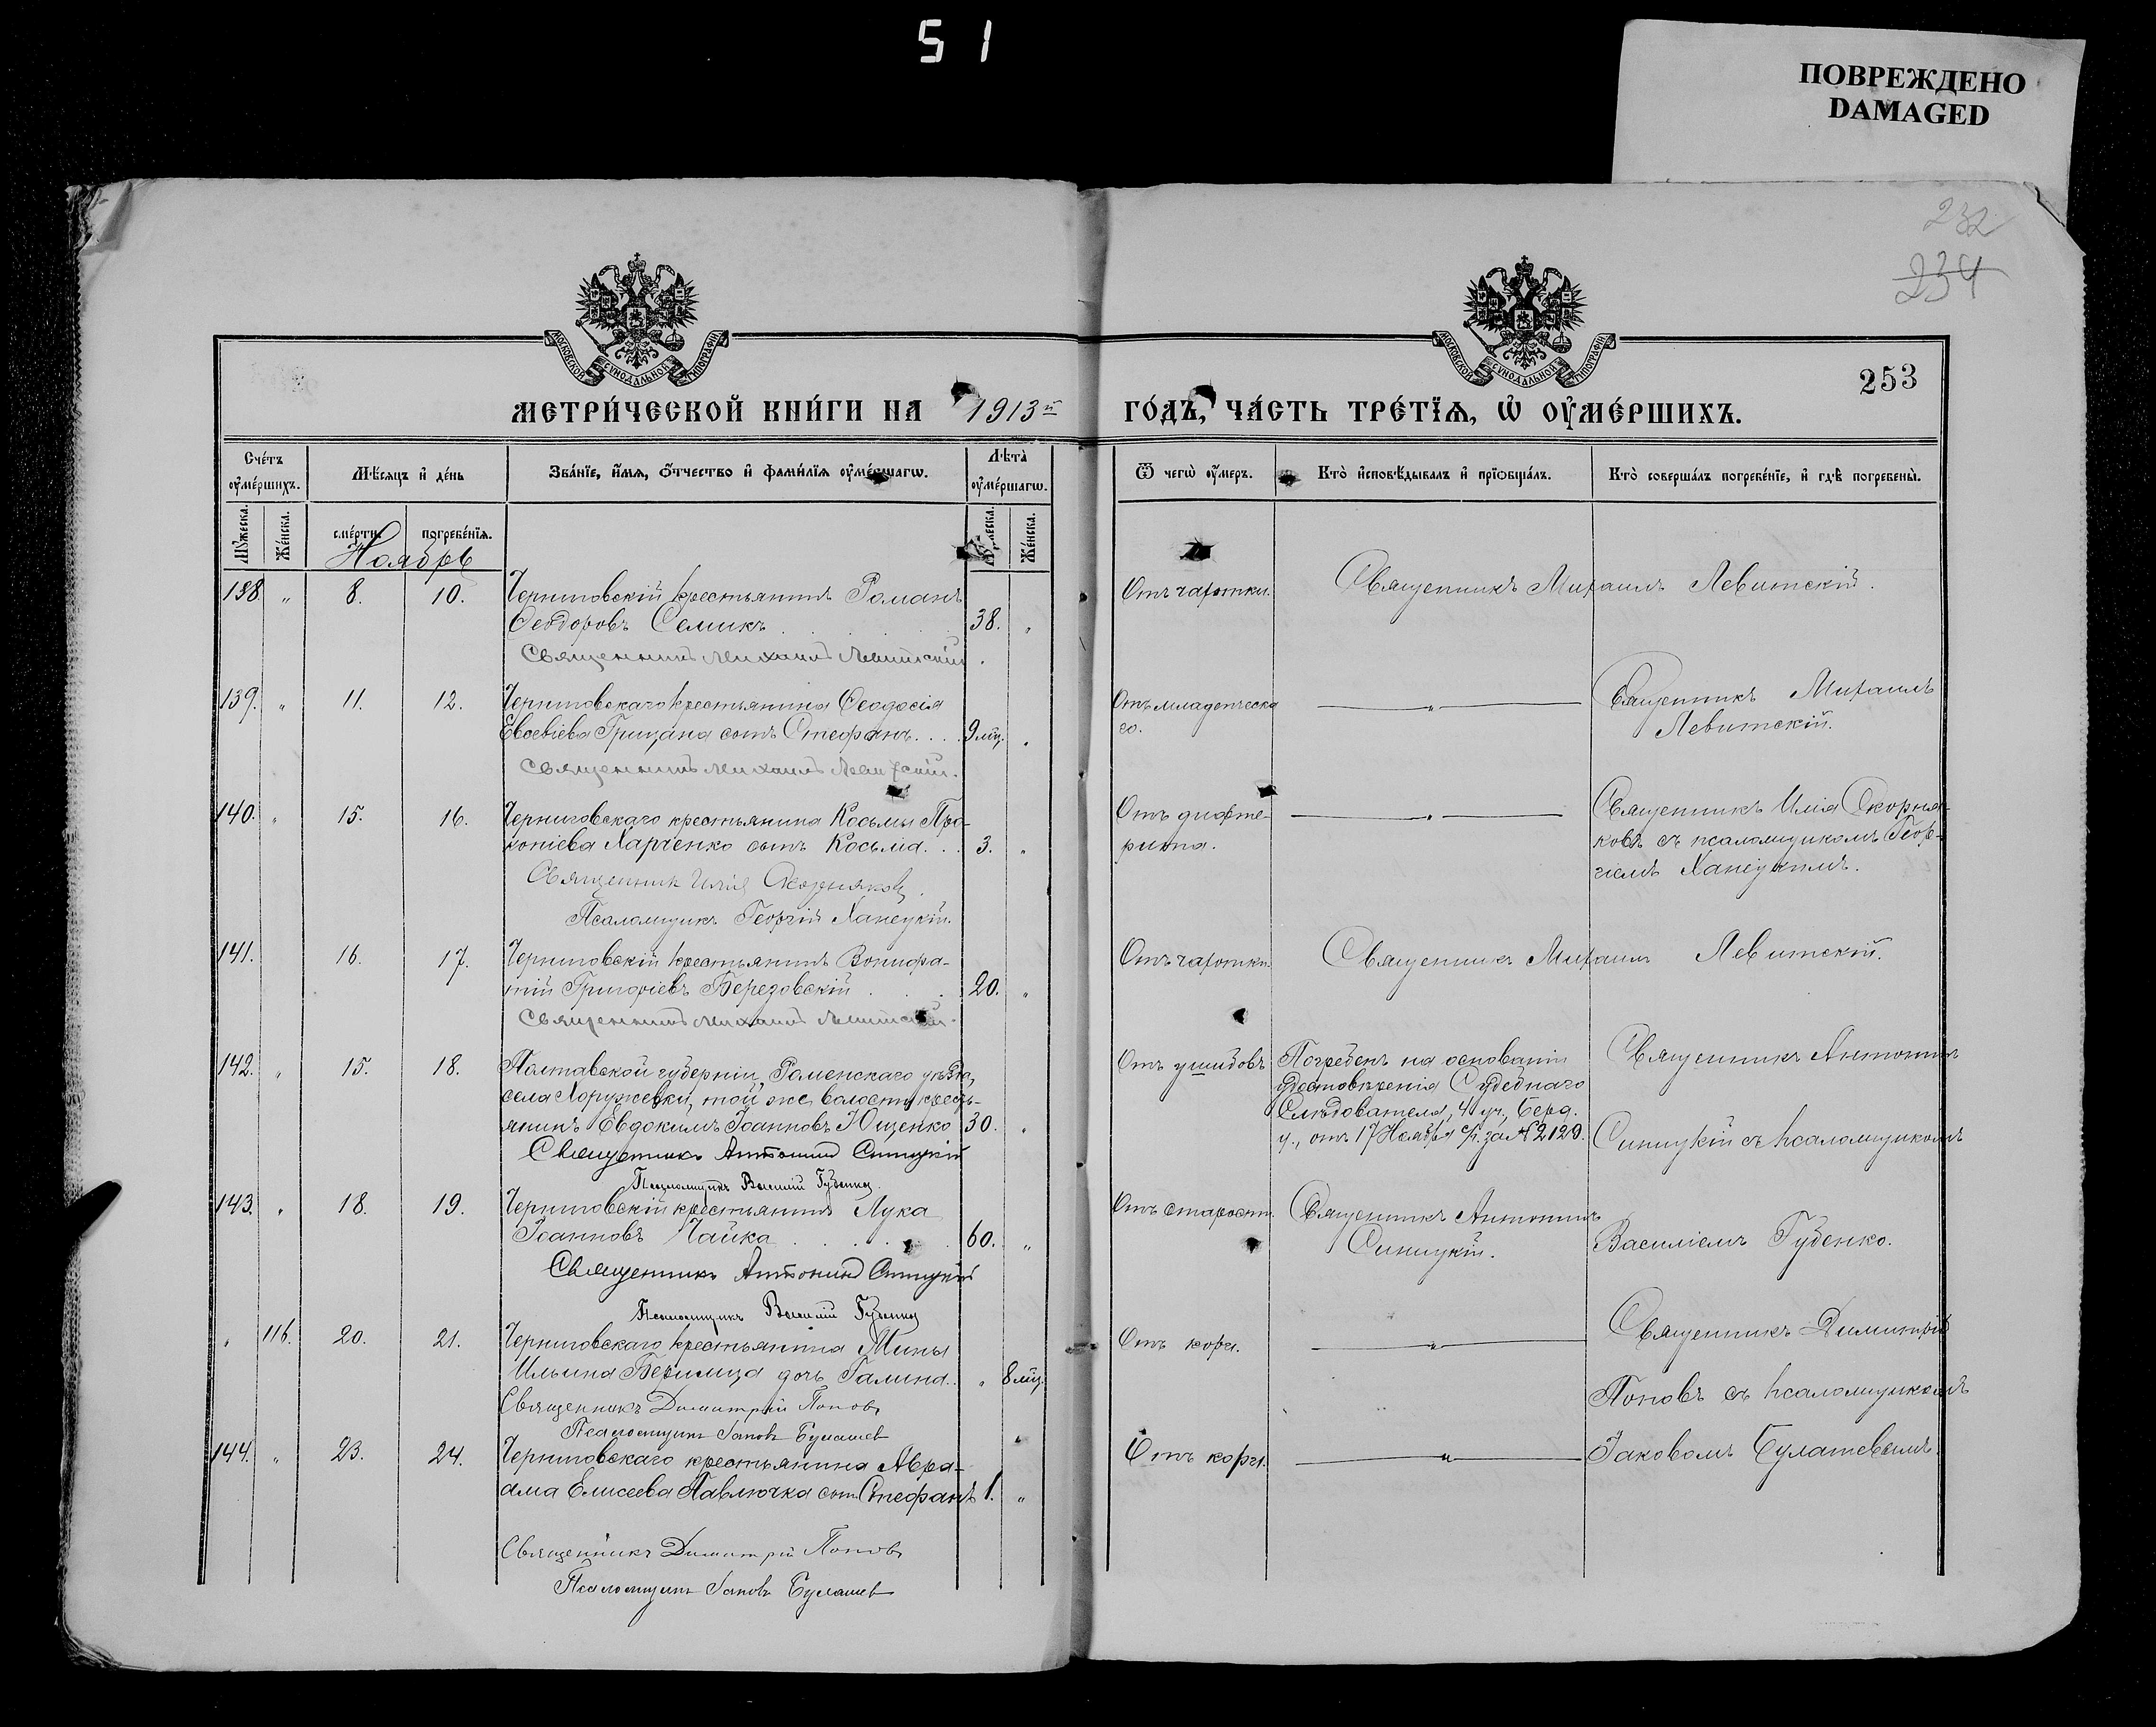 51
ПОВРЕЖДЕНО
DAMAGED
232
234
253
МОСКОВСКОЙ СѴНОДАЛЬНОЙ ТИПОГРАФІИ
МОСКОВСКОЙ СѴНОДАЛЬНОЙ ТИПОГРАФІИ
МЕТРИ́ЧЕСКОЙ КНИ́ГИ НА 1913й ГО́ДЪ, ЧА́СТЬ ТРЕ́ТЇѦ, Ѡ҆ ОУ҆МЕ́РШИХЪ.
Сче́тъ оу҆ме́ршихъ.
Мѣ́сяцъ и҆ де́нь
Зва́нїе, и҆́мѧ, ѻ҆́тчество и҆ фами́лїѧ оу҆ме́ршагѡ.
Лѣта̀ оу҆ме́ршагѡ.
Ѿ чегѡ̀ оу҆́меръ.
Кто̀ и҆сповѣ́дывалъ и҆ прїѡбща́лъ.
Кто̀ соверша́лъ погребе́нїе, и҆ гдѣ̀ погребены̀.
Му́жеска.
Же́нска.
сме́рти.
погребе́нїѧ.
Му́жеска.
Же́нска.
Ноябрь
138 " 8. 10. Черниговскій крестьянинъ Романъ
Ѳеодоровъ Семикъ 38. "
Священникъ Михаилъ Левитскій.
Отъ чахотки.
Священникъ Михаилъ Левитскій.
139. " 11. 12. Черниговскаго крестьянина Ѳеодосія
Евсевіева Грицана сынъ Стефанъ. . . 9 мц. "
Священникъ Михаилъ Левитскій.
Отъ младенческа
го.
"
Священникъ Михаилъ
Левитскій.
140. " 15. 16. Черниговскаго крестьянина Косьмы Про-
копіева Харченко сынъ Косьма. . . 3. "
Священник Илія Скорняковъ.
Псаломщикъ Георгій Ханецкій.
Отъ дифте-
рита.
"
Священникъ Илія Скорня-
ковъ съ псаломщикомъ Геор-
гіемъ Ханецкимъ.
141. 16. 17. Черниговскій крестьянинъ Вонифа-
тій Григоріевъ Березовскій 20. "
Священникъ Михаилъ Левитскій.
Отъ чахотки.
Священникъ Михаилъ Левитскій.
142. " 15. 18. Полтавской губерніи, Роменскаго уѣзда,
села Хоружевки, той же волости крестъ-
янинъ Евдокимъ Іоанновъ Ющенко 30. "
Священникъ Антонинъ Синицкій
Псаломщикъ Василій Губенко.
Отъ ушибовъ
Погребенъ на основаніи
удостовѣренія Судебнаго
Слѣдователя, 4 уч., Берд.
у., отъ 17 Ноября с/г. за № 2129.
Священникъ Антонинъ
Синицкій съ псаломщикомъ
143. " 18. 19. Черниговскій крестьянинъ Лука
Іоанновъ Чайка 60. "
Священникъ Антонинъ Синицкій
Псаломщикъ Василій Губенко
Отъ старости.
Священникъ Антонинъ
Синицкій.
Василіемъ Губенко.
" 116. 20. 21. Черниговскаго крестьянина Мины
Ильина дочь Галина. . " 8 мц.
Священникъ Димитрій Поповъ
Псаломщикъ Іаковъ Булашев
Отъ кори.
"
Священникъ Димитрій
Поповъ съ псаломщикомъ
144. " 23. 24. Черниговскаго крестьянина Авра-
ама Елисеева Павлючка сынъ Стефанъ 1. "
Священникъ Димитрій Поповъ
Псаломщикъ Іаковъ Булашев
Отъ кори.
"
Іаковомъ Булашевымъ.